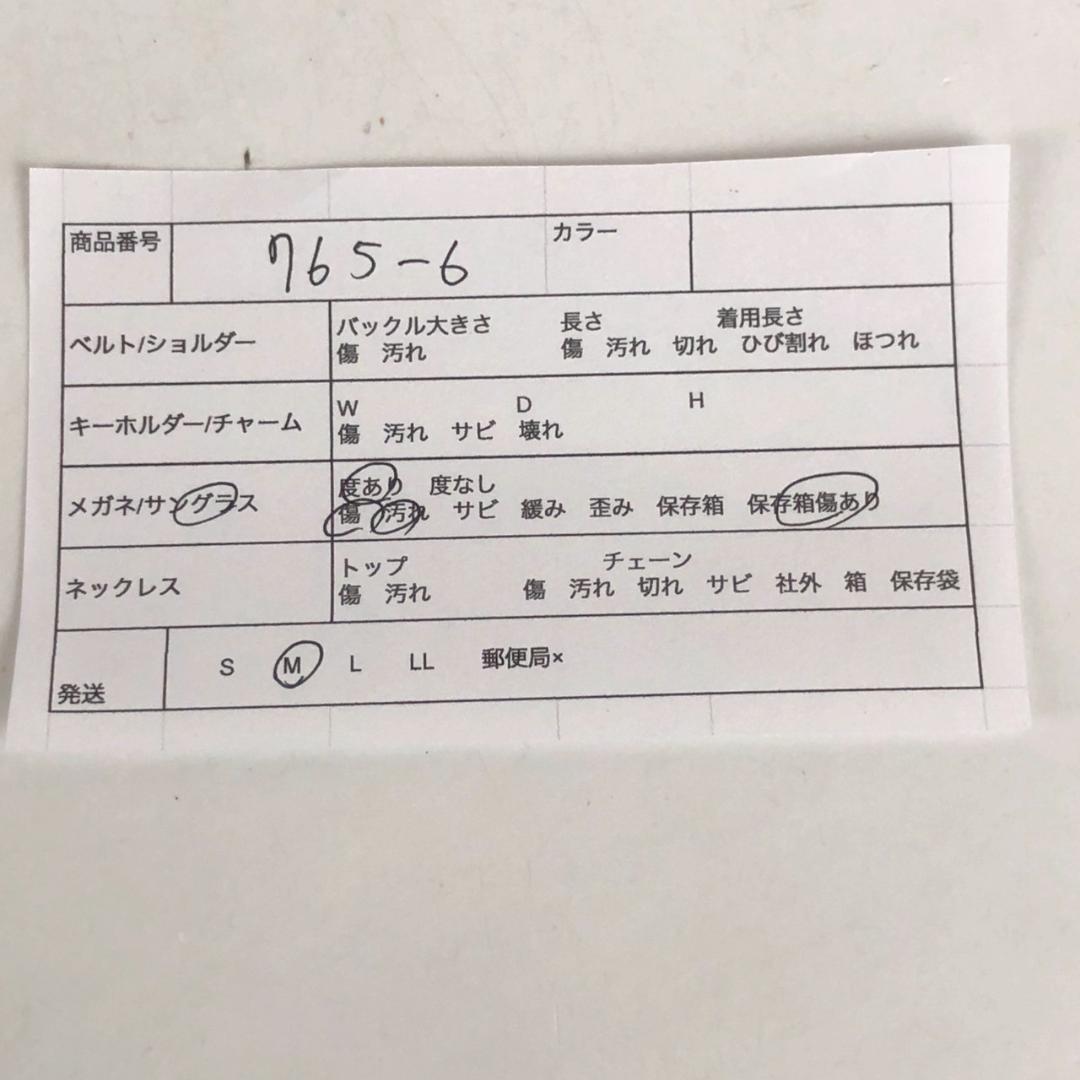 商品番号 765-6 カラー
ベルト/ショルダー バックル大きさ 長さ 着用長さ
傷 汚れ 傷 汚れ 切れ ひび割れ ほつれ
キーホルダー/チャーム W D H
傷 汚れ サビ 壊れ
メガネ/サングラス 度あり 度なし
傷 汚れ サビ 緩み 歪み 保存箱 保存箱傷あり
ネックレス トップ チェーン
傷 汚れ 傷 汚れ 切れ サビ 社外 箱 保存袋
発送 S M L LL 郵便局×